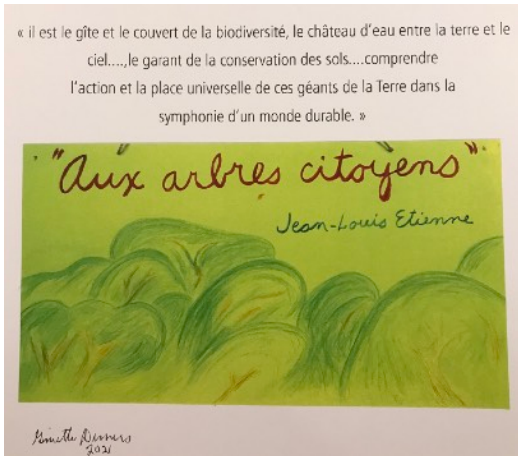 « il est le gîte et le couvert de la biodiversité, le château d'eau entre la terre et le
ciel....,le garant de la conservation des sols....comprendre
l'action et la place universelle de ces géants de la Terre dans la
symphonie d'un monde durable. »
"Aux arbres citoyens"
Jean-Louis Etienne
Ginette
2021